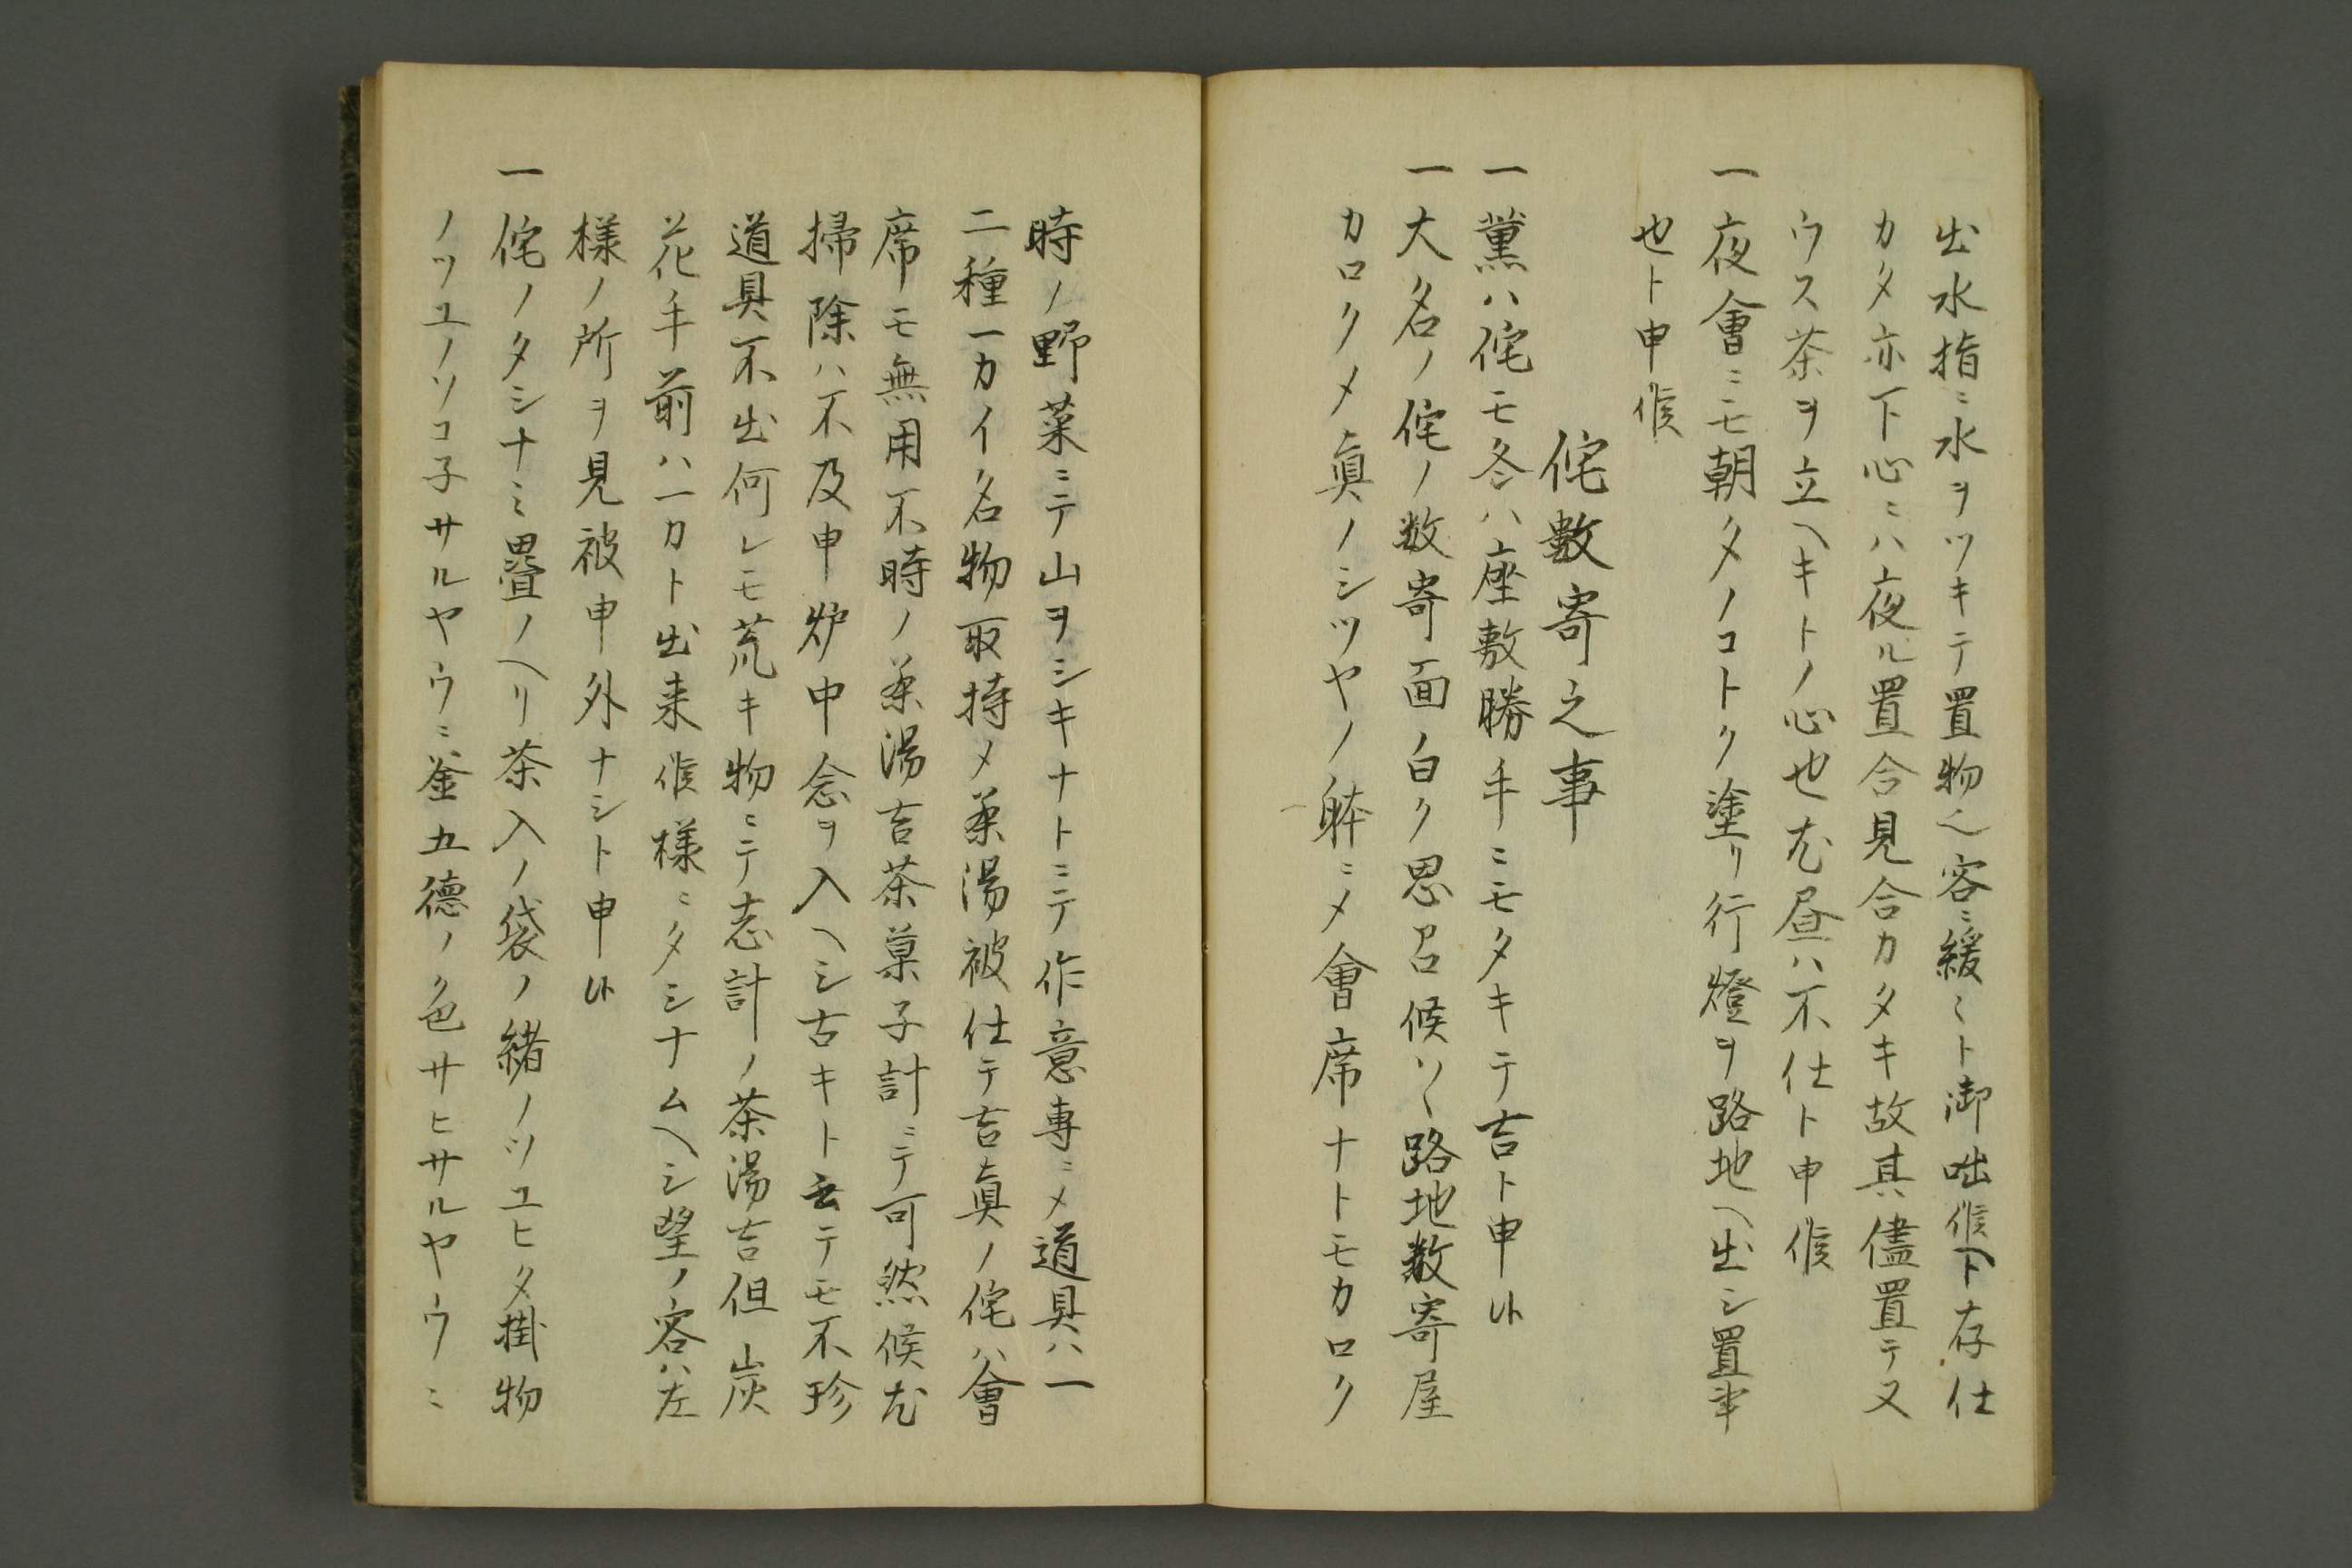 出水指ニ水ヲツキテ置物之客ニ緩〻ト御咄候ヘト存仕
カタ亦下心ニハ夜ル置合見合カタキ故其儘置テ又
ウス茶ヲ立ヘキトノ心也尤昼ハ不仕ト申候
一夜會ニモ朝夕ノコトク塗リ行燈ヲ路地ヘ出シ置事
也ト申候
侘敷寄之事
一薫ハ侘モ冬ハ座敷勝手ニモタキテ吉ト申候
一大名ノ侘ノ数寄面白ク思召候ハヽ路地数寄屋
カロクメ眞ノシツヤノ躰ニメ會席ナトモカロク
時ノ野菜ニテ山ヲシキナトニテ作意専ニメ道具ハ一
二種一カイ名物取持メ茶湯被仕テ吉眞ノ侘ハ會
席モ無用不時ノ茶湯吉茶菓子計ニテ可然候尤
掃除ハ不及申炉中念ヲ入ヘシ古キト云テモ不珍
道具不出何レモ荒キ物ニテ志計ノ茶湯吉但炭
花手前ハ一カト出来候様ニタシナムヘシ望ノ客ハ左
様ノ所ヲ見被申外ナシト申候
一侘ノタシナミ畳ノヘリ茶入ノ袋ノ緒ノツユヒタ掛物
ノツユノソコ子サルヤウニ釜五徳ノ色サヒサルヤウニ